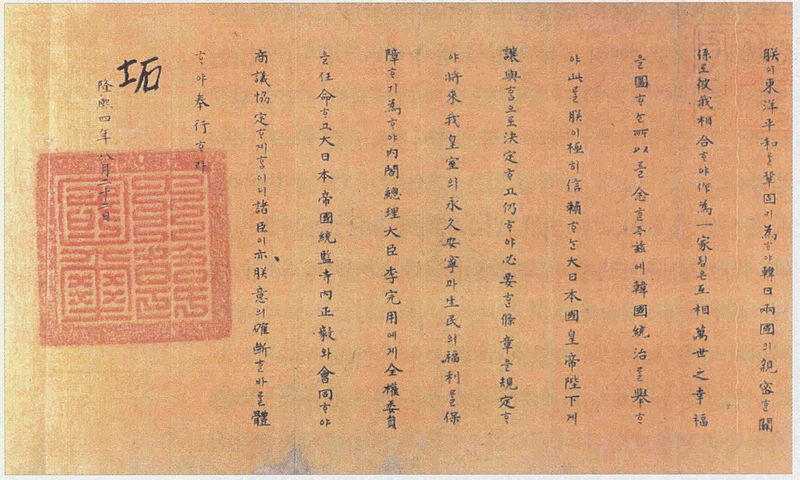 朕이東洋平和를鞏固히爲ᄒᆞ야韓日兩國의親密ᄒᆞᆫ關
係로彼我相合ᄒᆞ야作爲一家ᄒᆞᆷ은互相萬世之幸福
을圖ᄒᆞᄂᆞᆫ所以를念ᄒᆞᆫ즉玆에韓國統治를擧ᄒᆞ
야此를朕이極히信賴ᄒᆞᄂᆞᆫ大日本國皇帝陛下게
讓與ᄒᆞᆷ으로決定ᄒᆞ고仍ᄒᆞ야必要ᄒᆞᆫ條章을規定ᄒᆞ
야將來我皇室의永久安寧과生民의福利를保
障ᄒᆞ기爲ᄒᆞ야內閣總理大臣李完用에게全權委員
을任命ᄒᆞ고大日本帝國統監寺內正毅와會同ᄒᆞ야
商議協定ᄒᆞ게ᄒᆞᆷ이니諸臣이亦朕意의確斷ᄒᆞᆫ바를體
ᄒᆞ야奉行ᄒᆞ라
隆熙四年八月二十二日
坧